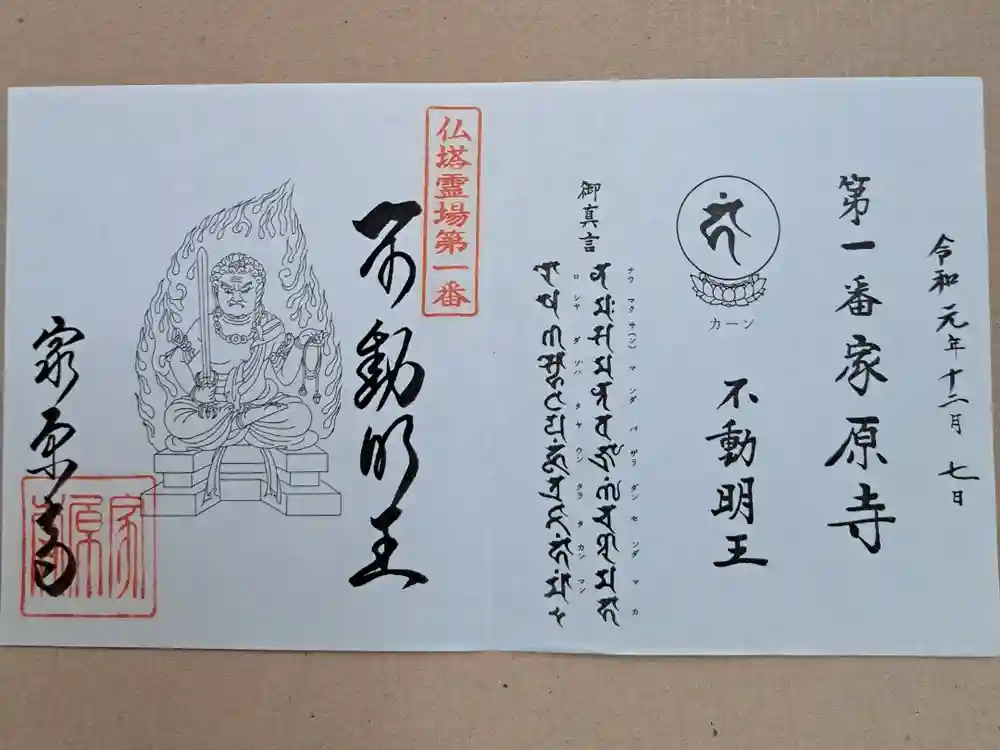 令和元年十二月七日
第一番家原寺
カーン
不動明王
御真言
ナウマクサ(ン)マンダバザラダンセンダマカ
ロシャダソハタヤウンタラタカンマン
仏塔霊場第一番
不動明王
家原寺
家原寺